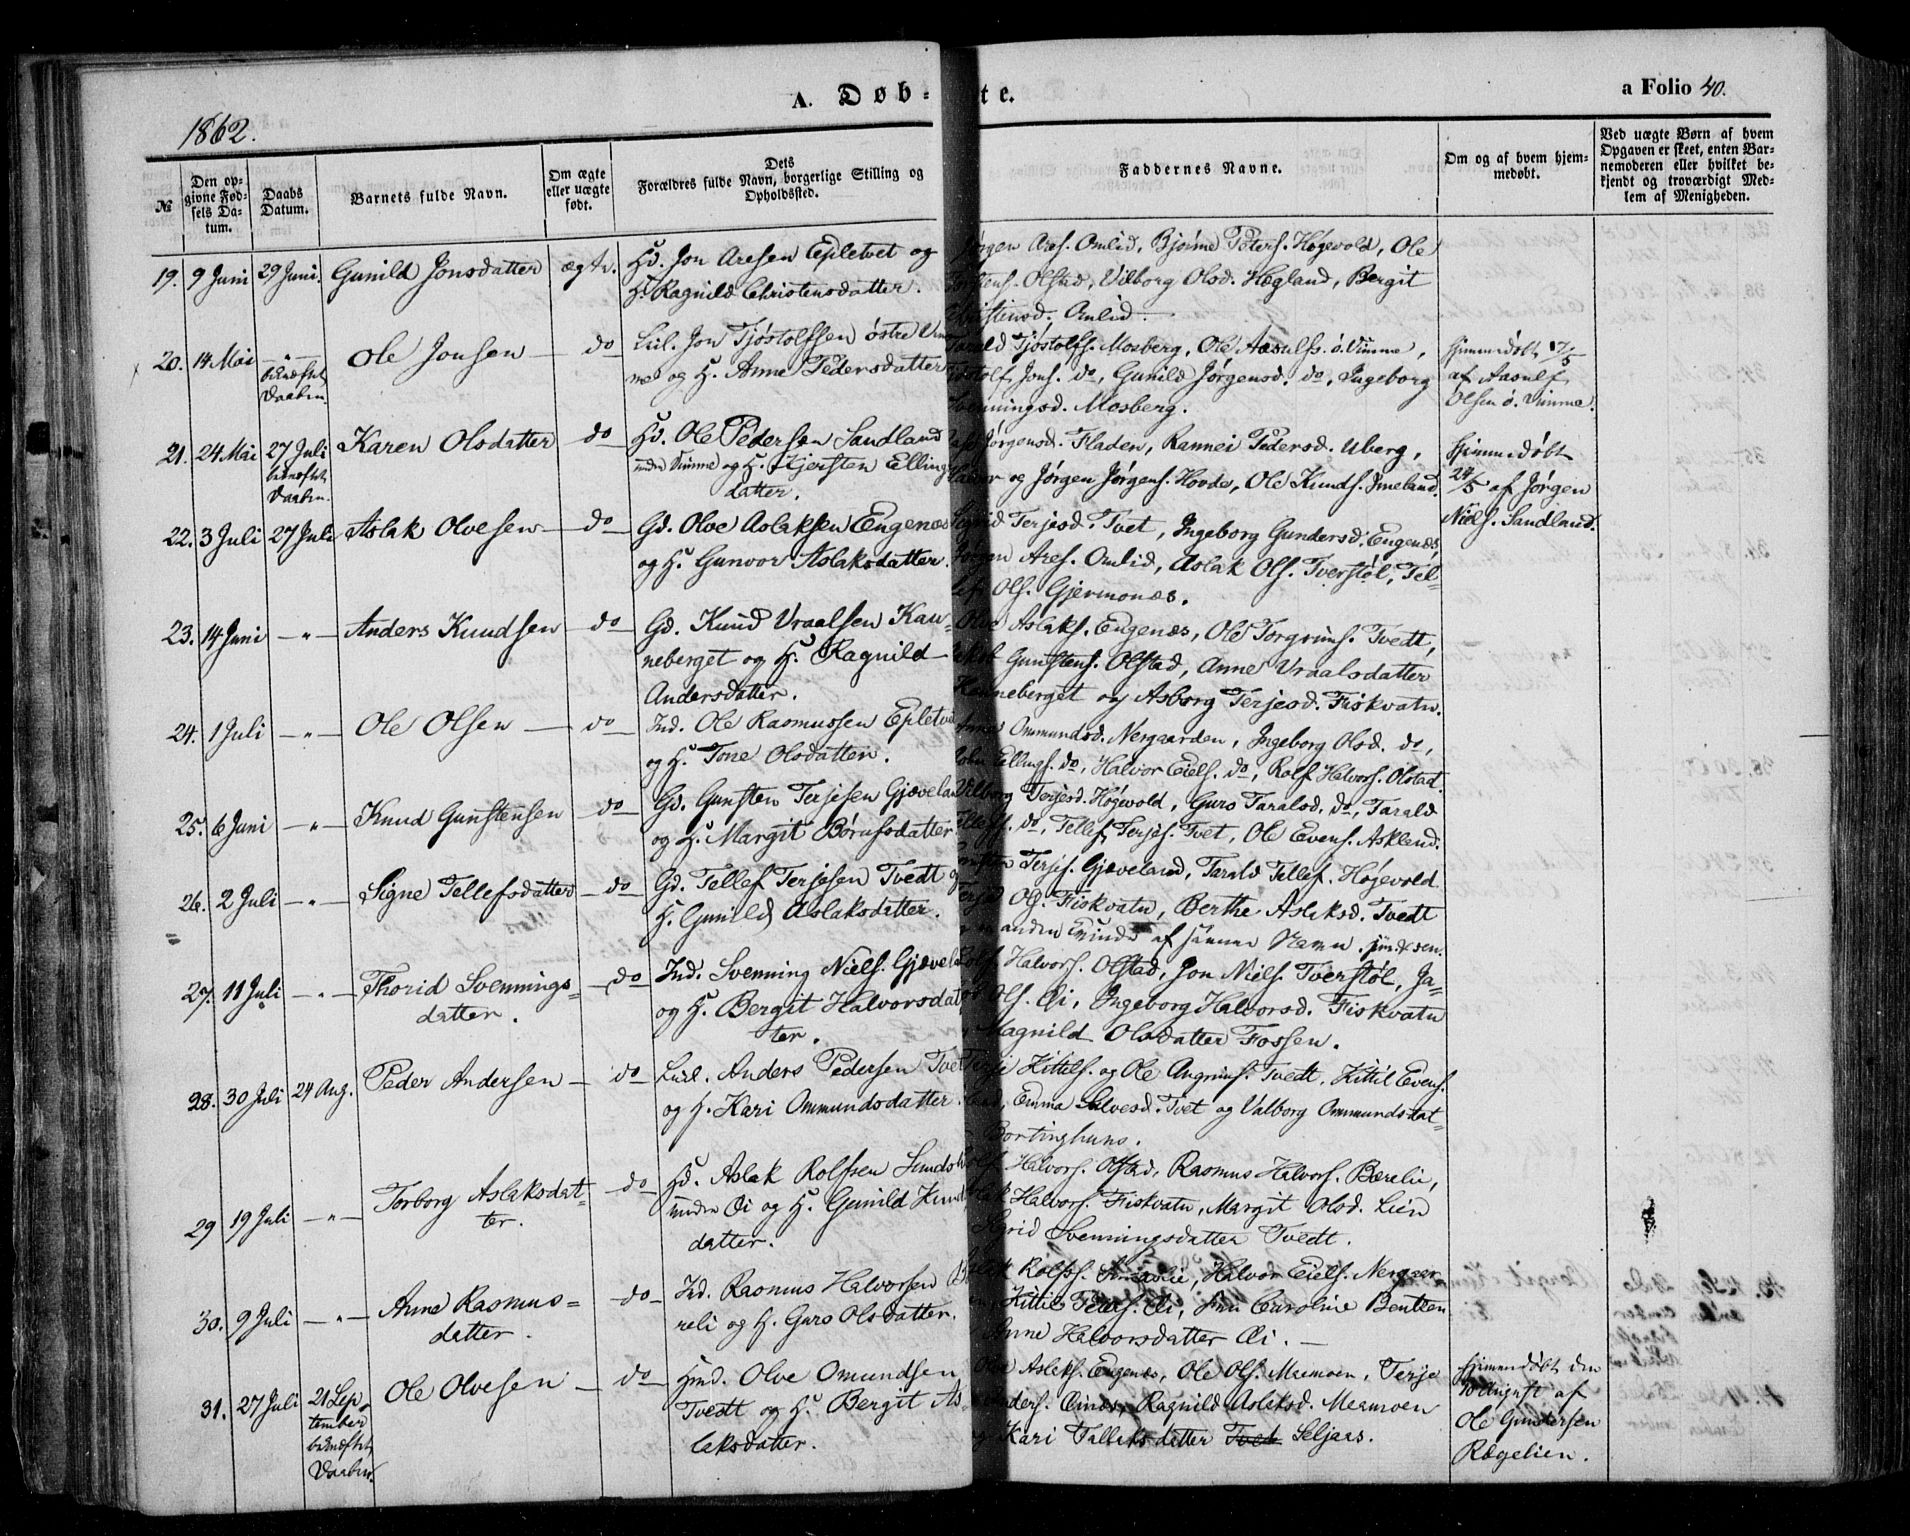 1862.
A. Døb- te.
a Folio 40.
№
Den op-
givne Fød-
sels Da-
tum.
Daabs
Datum.
Barnets fulde Navn.
Om ægte
eller uægte
født.
Dets
Forældres fulde Navn, borgerlige Stilling og
Opholdssted.
Faddernes Navne.
Om og af hvem hjem-
medøbt.
Ved uægte Børn af hvem
Opgaven er skeet, enten Bar-
nemoderen eller hvilket be-
kjendt og troværdigt Med-
lem af Menigheden.
19. 9 Juni 29 Juni. Gunild Jonsdatter ægte.
Hd. Jon Aresen Epletvet og
H. Ragnild Christensdatter.
Ares. Omlid, Bjørne Peters. Høgevold, Ole
Olstad, Vilborg Olsd. Hægland, Bergit
Omlid.
20. 14 Mai - " - bekræftet Daaben.
Ole Jonsen do
Jon Tjøstolfsen østre Vim
me og H. Anne Pedersdatter
Tjøstolfs. Mosberg, Ole Aasulfs. ø. Vimme,
Jons. do, Gunild Jørgensd. do, Ingeborg
Svenningsd. Mosberg.
Hjemmedøbt 17/5
af Aasulf
Olsen ø. Vimme.
21. 24 Mai 27 Juli bekræftet Daaben.
Karen Olsdatter do
Hd. Ole Pedersen Sandland
undre Vimme og H. Kjersten Elling
datter.
Jørgensd. Fladen, Rannei Pedersd. Uberg,
og Jørgen Jørgens. Hovde, Ole Knuds. Imeland.
Hjemmedøbt
24/5 af Jørgen
Niels. Sandland.
22. 3 Juli 27 Juli Aslak Olvesen do
Gd. Olve Aslaksen Eugenæs
og H. Gunvor Aslaksdatter.
Terjesd. Tvet, Ingeborg Gundersd. Eugenæs,
Ares. Omlid, Aslak Ols. Tverstøl, Tel-
lef Ols. Gjermonæs.
23. 14 Juni - " - Anders Knudsen do
Gd. Knud Vraalsen Kan-
neberget og H. Ragnild
Andersdatter.
Olve Aslaks. Eugenæs, Ole Torgrims. Tvedt,
Gunstens. Olstad, Anne Vraalsdatter
Kanneberget og Asborg Terjesd. Fiskvatn.
24. 1 Juli - " - Ole Olsen do
Ind. Ole Rasmussen Epletve
og H. Tone Olsdatter.
Ommundsd. Nergaarden, Ingeborg Olsd. do,
Ellings. do, Halvor Eiels. do, Rolf Halvors. Olstad.
25. 6 Juni - " - Knud Gunstensen do
Gd. Gunsten Terjesen Gjævelan
og H. Margit Børufsdatter
Vilborg Terjesd. Høgevold, Guro Taralsd. do, Tarald
Tellefs. do, Tellef Terjes. Tvet, Ole Evens. Askland.
26. 2 Juli - " - Signe Tellefsdatter do
Gd. Tellef Terjesen Tvedt og
H. Gunild Aslaksdatter.
Gunsten Terjes. Gjæveland, Tarald Tellefs. Høgevold
Ols. Fiskvatn, Berthe Aslaksd. Tvedt
anden Kvinde af samme Navn.
27. 11 Juli - " - Thorid Svennings-
datter.
do
Ind. Svenning Niels. Gjævel
og H. Bergit Halvorsdat
ter.
Rolf Halvors. Olstad, Jon Niels. Tverstøl, Ja-
Ols. Øi, Ingeborg Halvorsd. Fiskvatn
Magnild Olsdatter Fossen.
28. 30 Juli 24 Aug. Peder Andersen do
Anders Pedersen Tvet
og H. Kari Ommundsdatter.
Terje Kittels. og Ole Angrims. Tvedt, Kittil Evens.
Emma Salvesd. Tvet og Valborg Ommundsdat-
Bortinghuus.
29 19 Juli - " - Torborg Aslaksdat-
ter.
do
Hd. Aslak Rolfsen Sunds
undre Øi og H. Gunild Knud
datter.
Halvors. Olstad, Rasmus Halvors. Bærelie,
Halvors. Fiskvatn, Margit Olsd. Lien
Sigrid Svenningsdatter Tvedt.
30. 9 Juli - " - Anne Rasmus-
datter.
do
Ind. Rasmus Halvorsen Bæ
reli og H. Guro Olsdatter.
Rolfs. Halvor Eiels. Nergaar-
Kittil Øi, Fru Caroline Bentzen
Anne Halvorsdatter Øi.
31. 27 Juli 21 Sep-
tember
bekræftet
Daaben.
Ole Olvesen do
Hmd. Olve Omundsen
Tvedt og H. Bergit As-
laksdatter.
Olve Aslaks. Eugenæs, Ole Ols. Maamoen, Terje
Ragnild Aslaksd. Maamoen
og Kari Telleksdatter Tvet Seljaas.
Hjemmedøbt den
10 August af
Ole Gundersen
Rægelien.